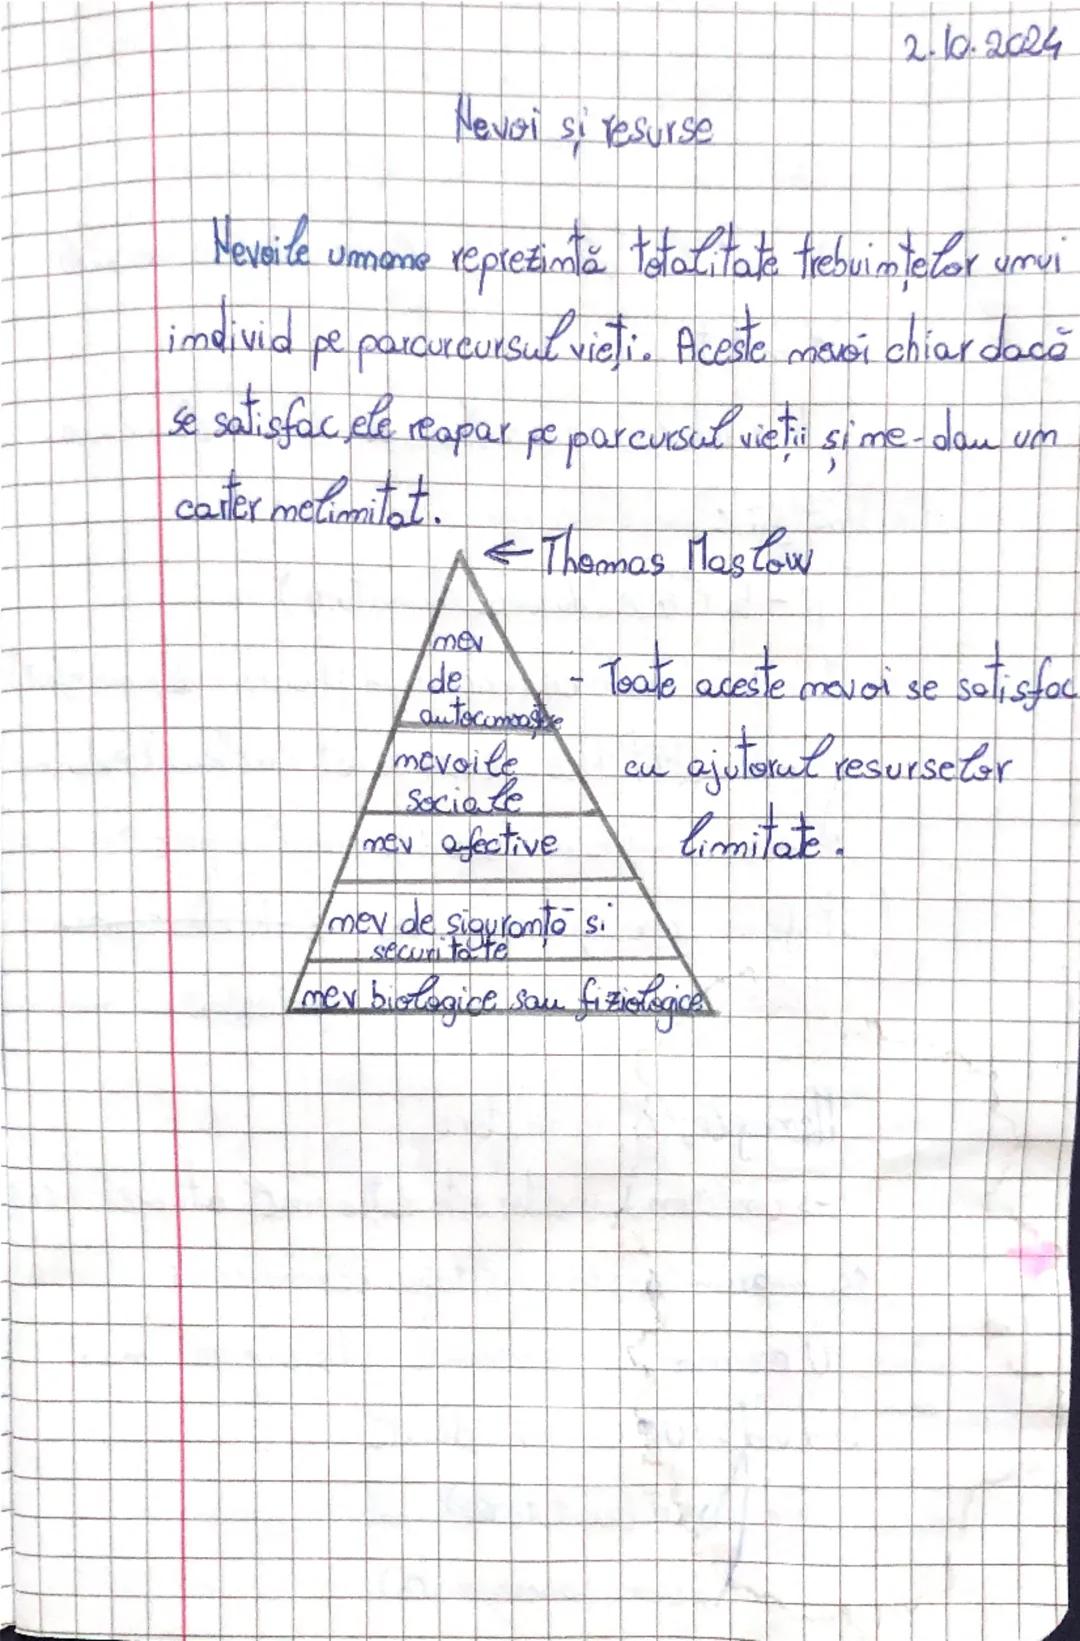 2.10.2024
Nevoi și resurse
Nevoile umane reprezintă totalitate trebuințelor unui
individ pe parcurcursul vieți. Aceste nevoi chiar dacă
se satisfac, ele reapar pe parcursul vieții și ne-dau un
carter nelimitat.
← Thomas Maslow
nev
de
- Toate aceste nevoi se satisfac
nevoile
cu ajutorul resurselor
sociale
nev afective
limitate.
nev de siguranță si
securitate
nev biologice sau fiziologice